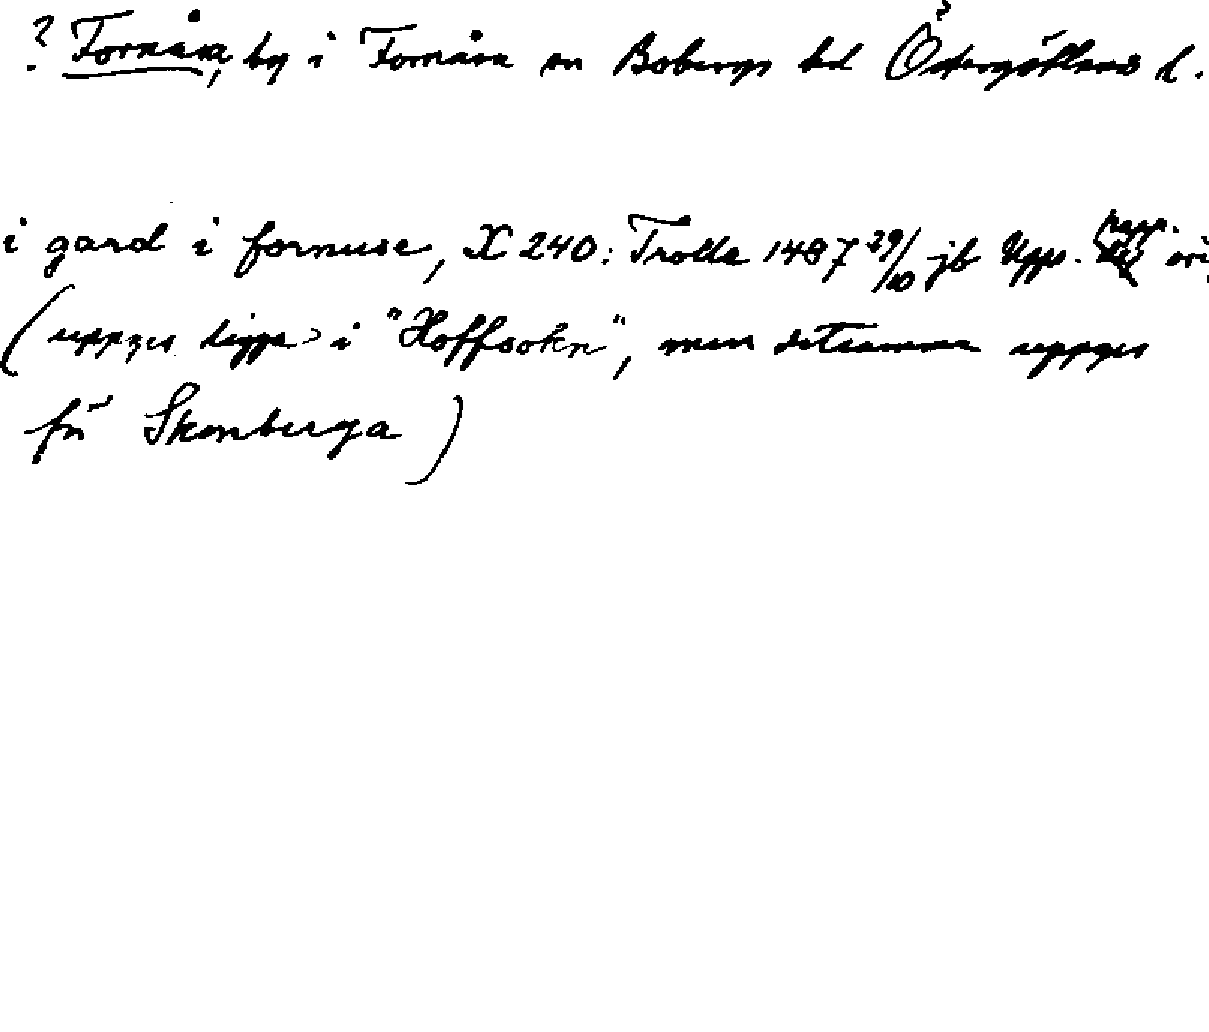 ? Fornåsa, by i Fornåsa sn Bobergs hd Östergötlands l.
i gard i fornuse, X 240: Trolle 1487 29/10 jb Upps. papp. ori
(uppges ligga i "Hoffsokn", men detsamma uppges
för Skønberga)